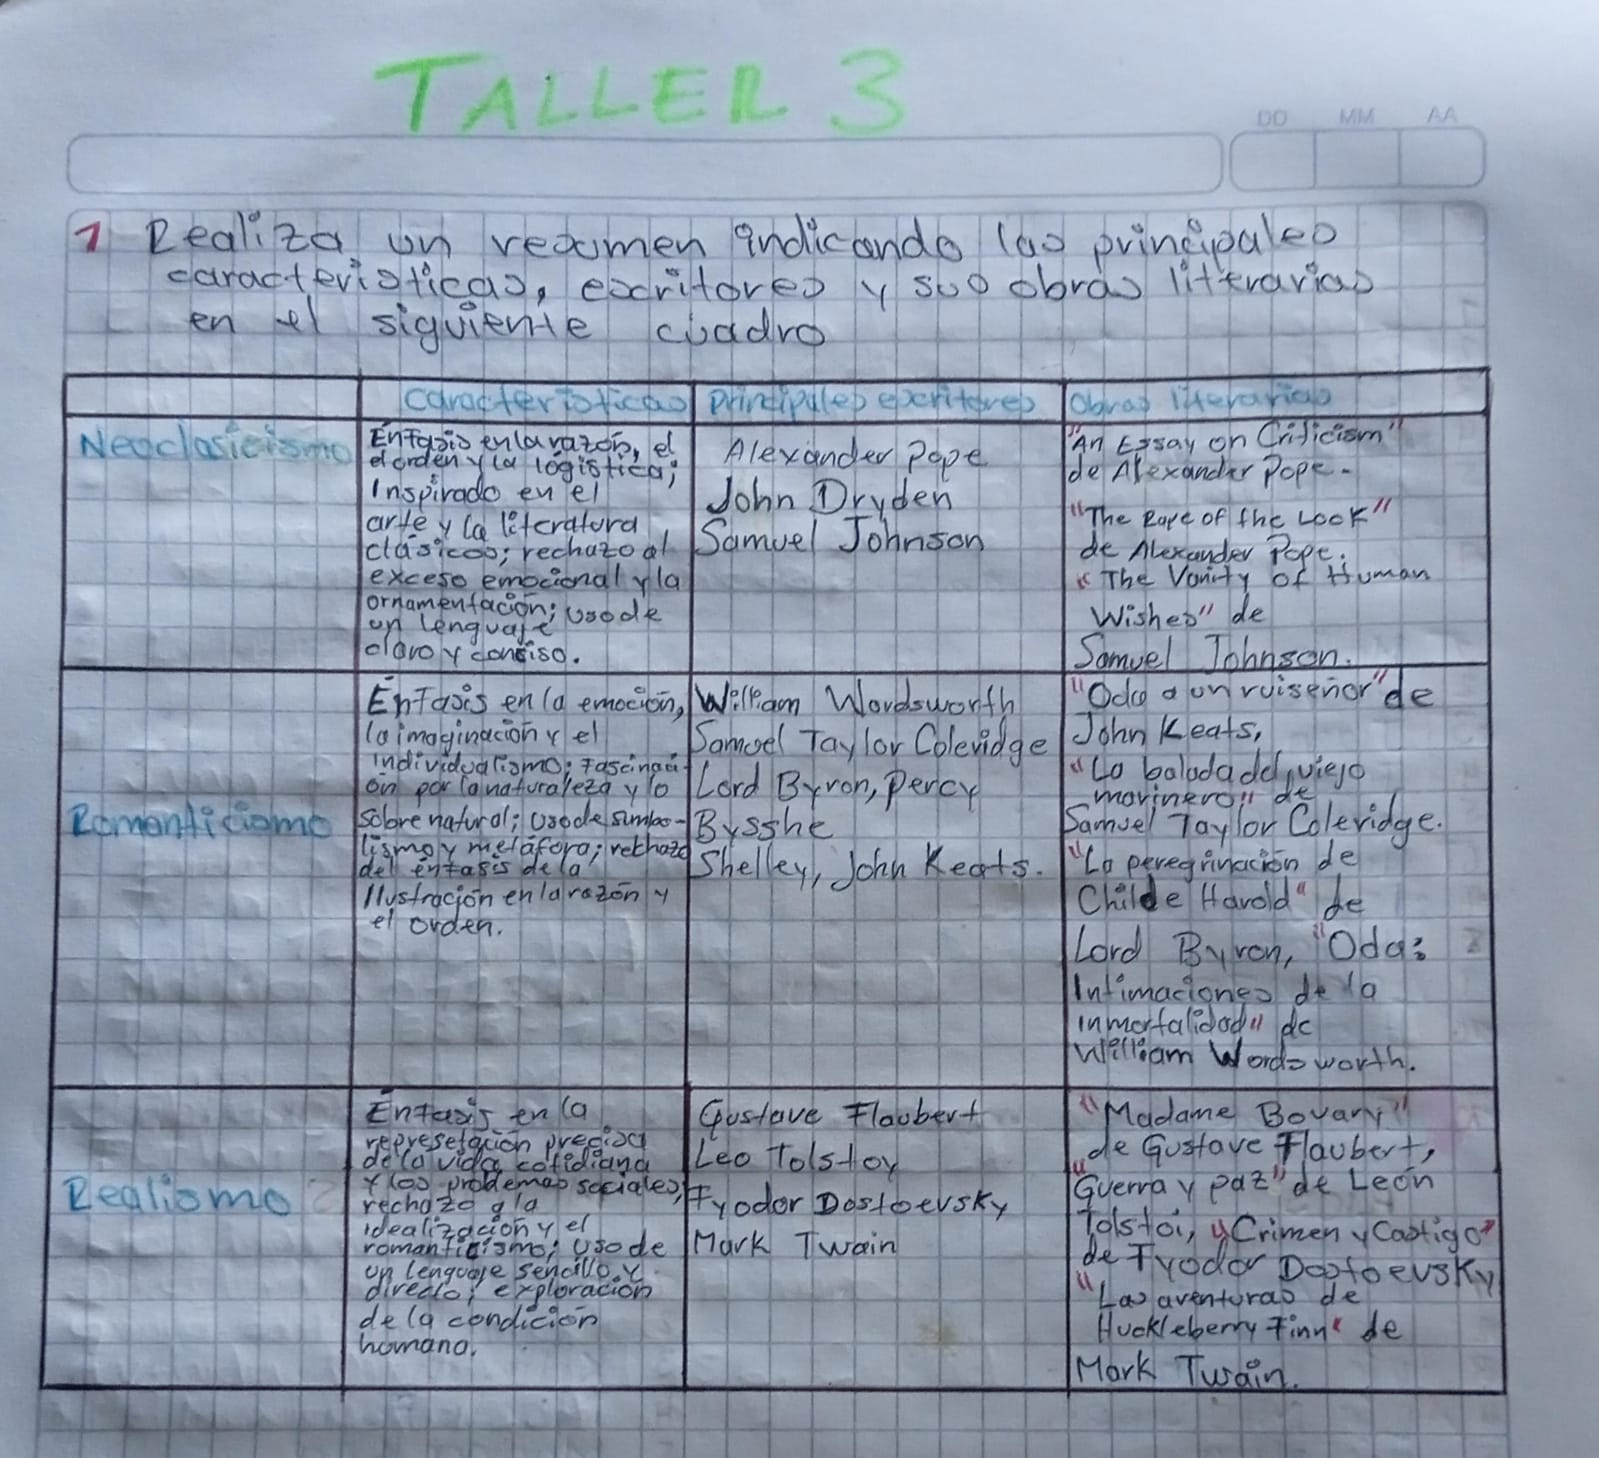 TALLER 3
DD MM AA
1 Realiza un resumen indicando las principales
caracteristicas, escritores y sus obras literarias
en el siguiente cuadro
caracteristicas
principales escritores
Obras literarias
Neoclasicismo
Énfasis en la razón, el
el orden y la lógistica;
Inspirado en el
arte y la literatura
clásicos; rechazo al
exceso emocional y la
ornamentación; uso de
un lenguaje
claro y conciso.
Alexander Pope
John Dryden
Samuel Johnson
"An Essay on Criticism"
de Alexander Pope.
"The Rape of the Look"
de Alexander Pope.
"The Vanity of Human
Wishes" de
Samuel Johnson.
Romanticismo
Énfasis en la emoción,
la imaginación y el
individualismo; fascinaci-
ón por la naturaleza y lo
sobrenatural; uso de simbo-
lismo y metáfora; rechazo
del énfasis de la
Ilustración en la razón y
el orden.
William Wordsworth
Samuel Taylor Coleridge
Lord Byron, Percy
Bysshe
Shelley, John Keats.
"Oda a un ruiseñor" de
John Keats,
"La balada del viejo
marinero" de
Samuel Taylor Coleridge.
"La peregrinación de
Childe Harold" de
Lord Byron, "Oda:
Intimaciones de la
inmortalidad" de
William Wordsworth.
Realismo
Énfasis en la
represetación precisa
de la vida cotidiana
y los problemas sociales;
rechazo a la
idealización y el
romanticismo; uso de
un lenguaje sencillo y
directo; exploración
de la condición
humana.
Gustave Flaubert
Leo Tolstoy
Fyodor Dostoevsky
Mark Twain
"Madame Bovary"
de Gustave Flaubert,
"Guerra y paz" de León
Tolstoi, "Crimen y Castigo"
de Fyodor Dostoevsky
"Las aventuras de
Huckleberry Finn" de
Mark Twain.